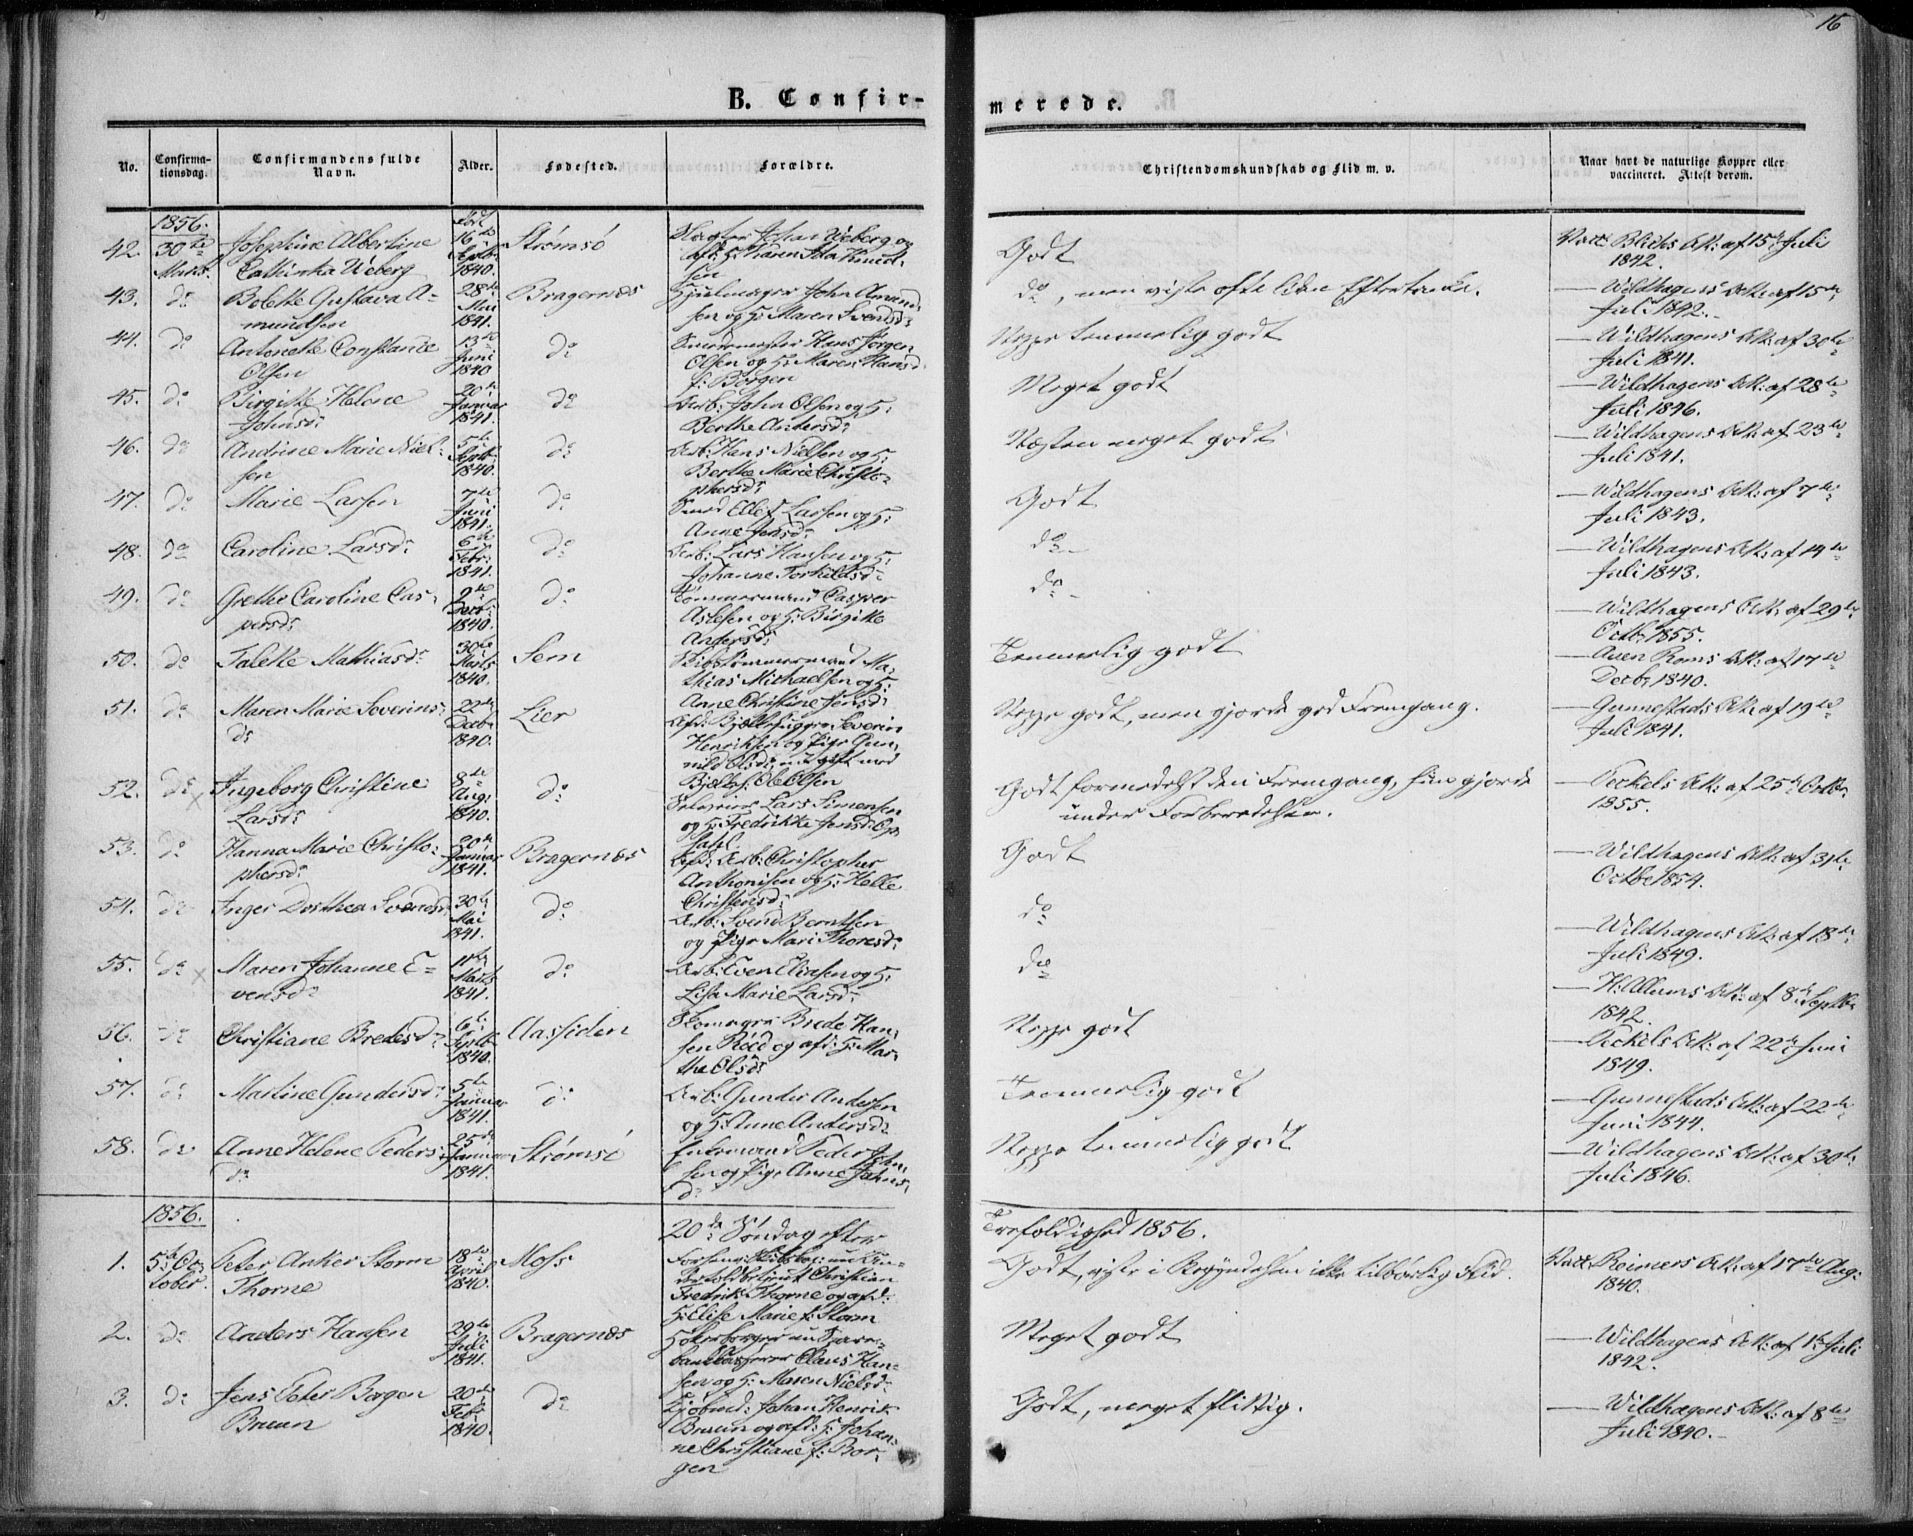 16
B. Confirmerede.
No. Confirmationsdag. Confirmandens fulde Navn. Alder. Fødested. Forældre. Christendomskundskab og Flid m. v. Naar havt de naturlige Kopper eller vaccineret. Attest derom.
1856. Født
42. 30te Marts. Josephine Albertine Cathinka Weberg 16de Septb. 1840. Strømsö Johan Weberg og afd: H: Karen Knud- sen Godt Vacc: Blichs Att: af 15de Juli 1842.
43. do Bolette Gustava A- mundsen 28de Mai 1841. Bragernæs Hjulmager John Amund- sen og H: Maren Svendsd: do, men viste ofte liden Eftertanke. — Wildhagens Att: af 15de Juli 1842.
44. do Antonette Constance Olsen 13de Juni 1840 do Hans Jørgen Olsen og H: Maren Hansd. f: Borgen Neppe temmelig godt — Wildhagens Att: af 30te Juli 1841.
45. do Birgitte Helene Johnsd: 20de Januar 1841. do Arb: John Olsen og H: Berthe Andersd: Meget godt — Wildhagens Att: af 28de Juli 1846.
46. do Andrine Marie Niel- sen 5te Septb. 1840. do Arb: Hans Nielsen og H: Berthe Marie Christo- phersd: Næsten meget godt — Wildhagens Att: af 23de Juli 1841.
47. do Marie Larsen 7de Juni 1841. do Smed Ellef Larsen og H: Anne Jensd: Godt — Wildhagens Att: af 7de Juli 1843.
48. do Caroline Larsd: 6te Febr: 1841. do Arb: Lars Hansen og H: Johanne Torkildsd: do — Wildhagens Att: af 14de Juli 1843.
49. do Grethe Caroline Cas- persd: 9de Decb: 1840. do Tømmermand Casper Aslesen og H: Birgitte Andersd: do — Wildhagens Att: af 29de Octbr 1855.
50. do Talette Mathiasd: 30te Marts 1840. Sem Skibstømmermand Ma- thias Michaelsen og H: Anne Christine Jensd: Temmelig godt — Aven Roms Att: af 17de Decbr 1840.
51. do Maren Marie Severins- d: 22de Decbr 1840. Lier Afd: Severin Henriksen og Pige Gun- nild Olsd:, nu gift med Ole Olsen Neppe godt, men gjorde god Fremgang. — Gunnestads Att: af 19de Juli 1841.
52. do Ingeborg Christine Larsd: 8de Aug: 1840. do Lars Simensen og H: Fredrikke Jensd: Godt formedelst den Fremgang, hun gjorde under Forberedelsen. — Teckels Att: af 25de Octbr. 1855.
53. do Hanna Marie Christo- phersd: 20de Januar 1841. Bragernæs Afd: Arb: Christopher Anthonisen og H: Helle Christensd: Godt — Wildhagens Att: af 31te Octbr 1854.
54. do Inger Dorthea Svendsd: 30te Mai 1841. do Arb: Svend Berntsen og Pige Mari Thoresd: do — Wildhagens Att: af 18de Juli 1849.
55. do Maren Johanne E- vensd: 11te Marts 1841. do Arb: Even Eliasen og H: Lise Marie Larsd: do — H. Allums Att: af 8de Septbr 1842.
56. do Christiane Bredesd: 6te Septb: 1840. Aassiden Skomager Brede Han- sen Röed og afd: H: Mar- the Olsd: Neppe godt — Teckels Att: af 22de Juni 1849.
57. do Martine Gundersd: 5te Januar 1841. do Arb: Gunder Andersen og H: Anne Andersd: Temmelig godt — Gunnestads Att: af 22de Juni 1844.
58. do Anne Helene Peders- d: 25de Januar 1841. Strømsö Enkemand Peder John- sen og Pige Anne Johns- d: Neppe temmelig godt — Wildhagens Att: af 30te Juli 1846.
1856. 20de Söndag efter Trefoldighed 1856.
1. 5te Oc- tober. Peter Anker Storm Thorne 18de April 1840. Moss Christian Fredrik Thorne og afd: H: Elise Marie f: Storm Godt, viste i Begyndelsen ikke tilbørlig Flid. Vacc: Reimers Att: af 17de Aug: 1840.
2. do Anders Hansen 29de Juli 1841. Bragernæs Hökerborger nu Spare- bankkasserer Claus Han- sen og H: Maren Nielsd: Meget godt — Wildhagens Att: af 1ste Juli 1842.
3. do Jens Peter Borgen Bruun 20de Feb: 1840. do Kjöbmd: Johan Henrik Bruun og afd: H: Johan- ne Christiane f: Bor- gen Godt, meget flittig. — Wildhagens Att: af 8de Juli 1840.